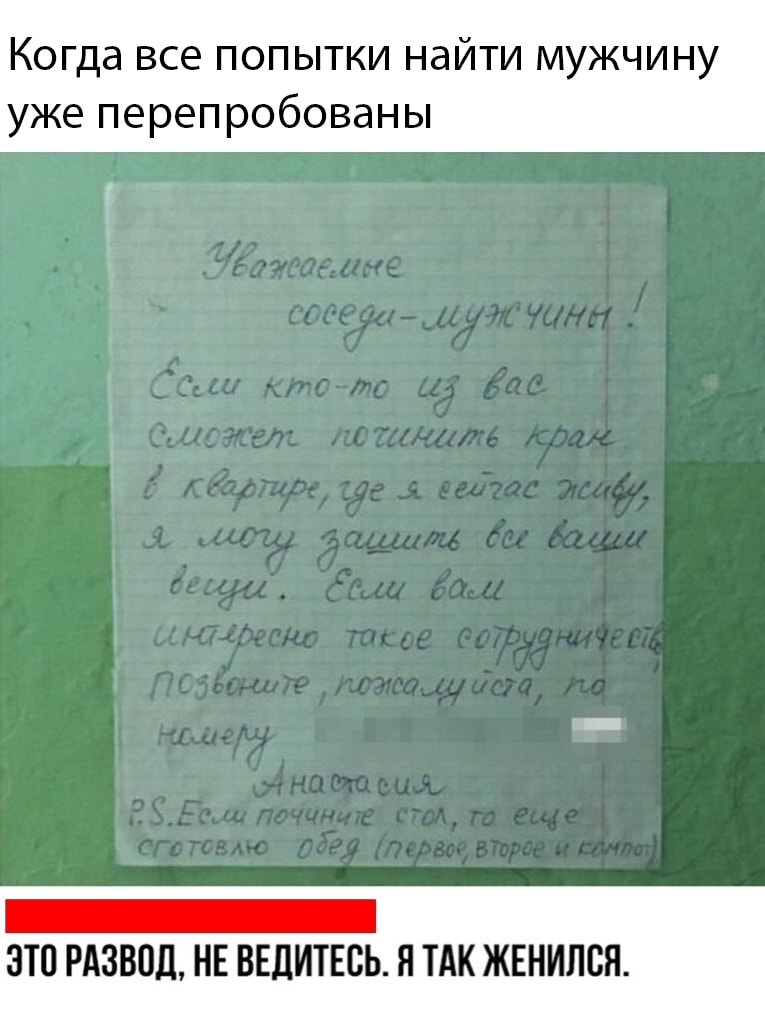 Когда все попытки найти мужчину
уже перепробованы
Уважаемые
соседи-мужчины!
Если кто-то из вас
сможет починить кран
в квартире, где я сейчас живу,
я могу зашить все ваши
вещи. Если вам
интересно такое сотрудничеств
позвоните, пожалуйста, по
номеру
Анастасия
P.S. Если почините стол, то еще
сготовлю обед (первое, второе и компот)
ЭТО РАЗВОД, НЕ ВЕДИТЕСЬ. Я ТАК ЖЕНИЛСЯ.